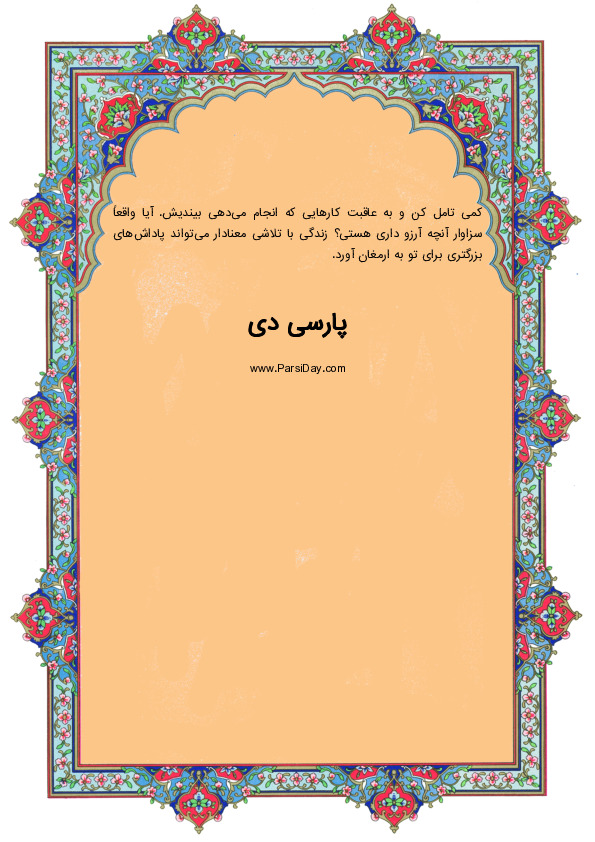 کمی تامل کن و به عاقبت کارهایی که انجام می‌دهی بیندیش. آیا واقعاً
سزاوار آنچه آرزو داری هستی؟ زندگی با تلاشی معنادار می‌تواند پاداش‌های
بزرگتری برای تو به ارمغان آورد.
پارسی دی
www.ParsiDay.com